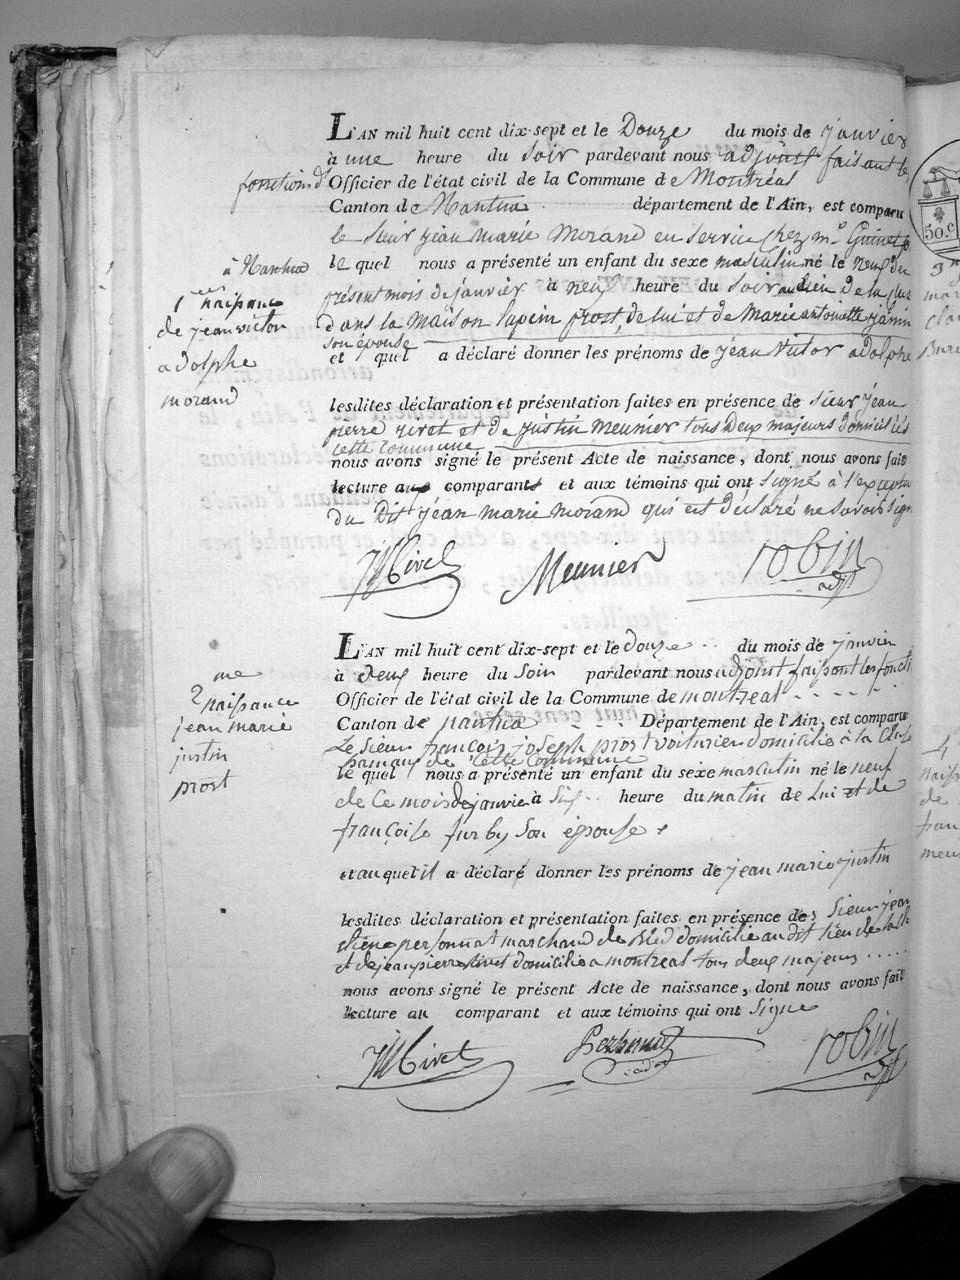 L'AN mil huit cent dix-sept et le Douze du mois de janvier
à une heure du Soir pardevant nous adjoint faisant le
fonctions d' Officier de l'état civil de la Commune de Montréal
Canton de Nantua département de l'Ain, est comparu
le sieur jean marie Morand en service chez mr Guinet
à Nantua
le quel nous a présenté un enfant du sexe masculin né le neuf du
présent mois de janvier à neuf heure du Soir au lieu de la
dans la maison prost, de lui et de Marie antoinette jamin
son épouse
et quel a déclaré donner les prénoms de jean Victor adolphe
1ere naissance
de jean victor
adolphe
morand
lesdites déclaration et présentation faites en présence de Sieur jean
pierre rivet et de justin Meunier tous Deux majeurs Domiciliés
cette Commune
nous avons signé le présent Acte de naissance, dont nous avons fait
lecture aux comparants et aux témoins qui ont signé à l'exception
du Dit jean marie morand qui est déclaré ne savoir sign
Rivet Meunier robin
adjt
L'AN mil huit cent dix-sept et le douze du mois de janvier
à deux heure du Soir pardevant nous adjoint faisant les foncti
Officier de l'état civil de la Commune de montreal
Canton de nantua Département de l'Ain, est comparu
Le Sieur françois joseph prost voiturier domicilié à la
hameau de cette Commune
le quel nous a présenté un enfant du sexe masculin né le neuf
de Ce mois de janvier à Six heure du matin de Lui et de
françoise Son épouse
et auquel il a déclaré donner les prénoms de jean marie justin
2me naissance
jean marie
justin
prost
lesdites déclaration et présentation faites en présence de Sieur jean
personnat marchand de Bled domicilié au dit lieu de
et de jean pierre Rivet domicilié a montreal tous deux majeurs
nous avons signé le présent Acte de naissance, dont nous avons fait
lecture au comparant et aux témoins qui ont Signe
Rivet robin
adjt
50.c